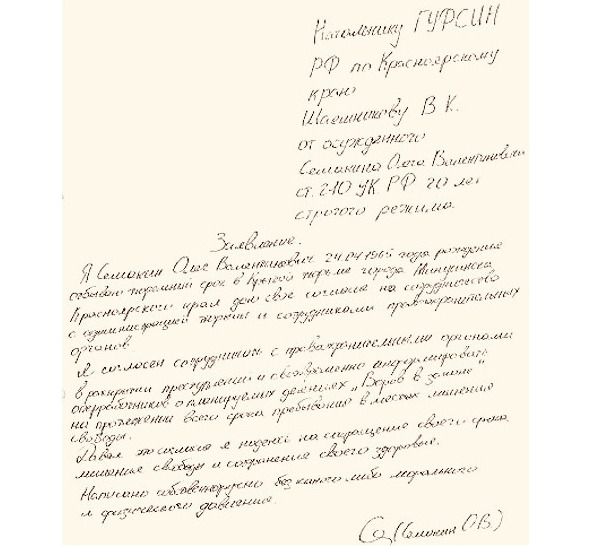 Начальнику ГУФСИН
РФ по Красноярскому
краю
Шаешникову В К.
от осужденного
Семакина Олега Валентиновича
ст. 210 УК РФ 20 лет
строгого режима.
Заявление.
Я Семакин Олег Валентинович 24.04.1965 года рождение
отбываю тюремный срок в Крытой тюрьме города Минусинска
Красноярского края даю свое согласие на сотрудничество
с администрацией тюрьмы и сотрудниками правоохранительных
органов
Я согласен сотрудничать с правоохранительными органами
в раскрытии преступлений и своевременно информировать
оперработников о планируемых деяниях „Воров в законе"
на протяжении всего срока пребывания в местах лишения
свободы.
Давая это согласие я надеюсь на сокращение своего срока
лишения свободы и сохранение своего здоровья.
Написано собственноручно без какого либо морального
и физического давления.
(Семакин О В)